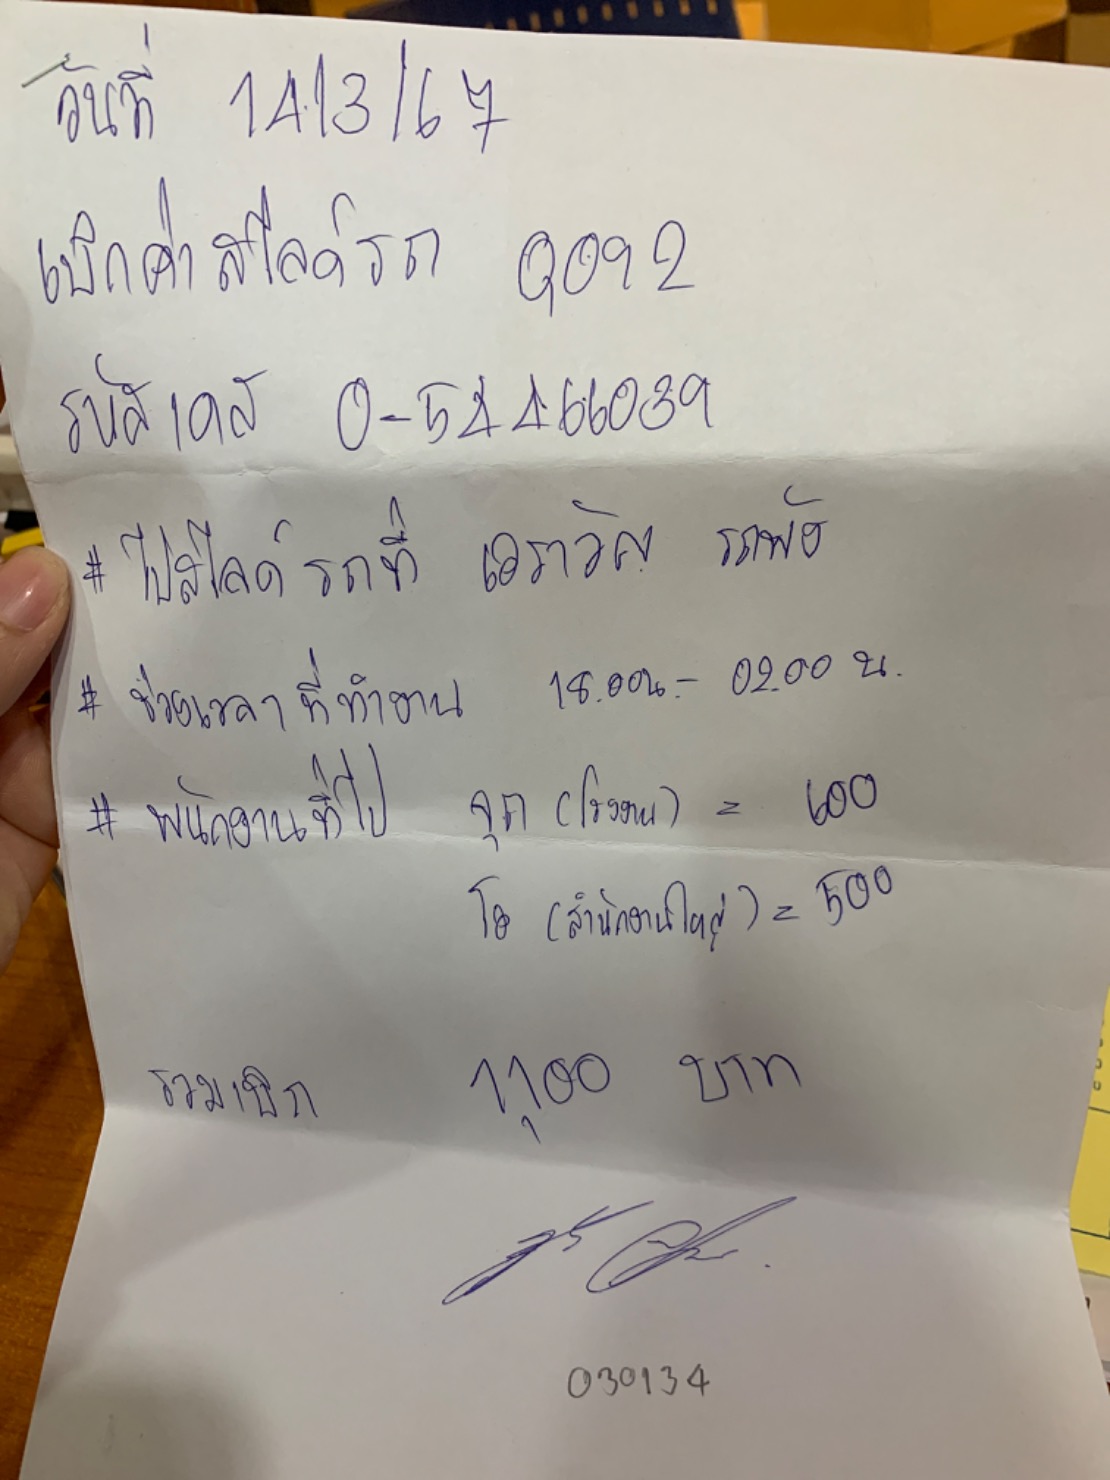 วันที่ 14/3/67
เบิกค่าสไลด์รถ Q092
รหัสเคส 0-54466039
# ไปสไลด์รถที่ เอราวัณ รถพัง
# ช่วงเวลาที่ทำงาน 18.00น.- 02.00 น.
# พนักงานที่ไป จุก (โรงงาน) = 600
โอ (สำนักงานใหญ่) = 500
รวมเบิก 1,100 บาท
030134